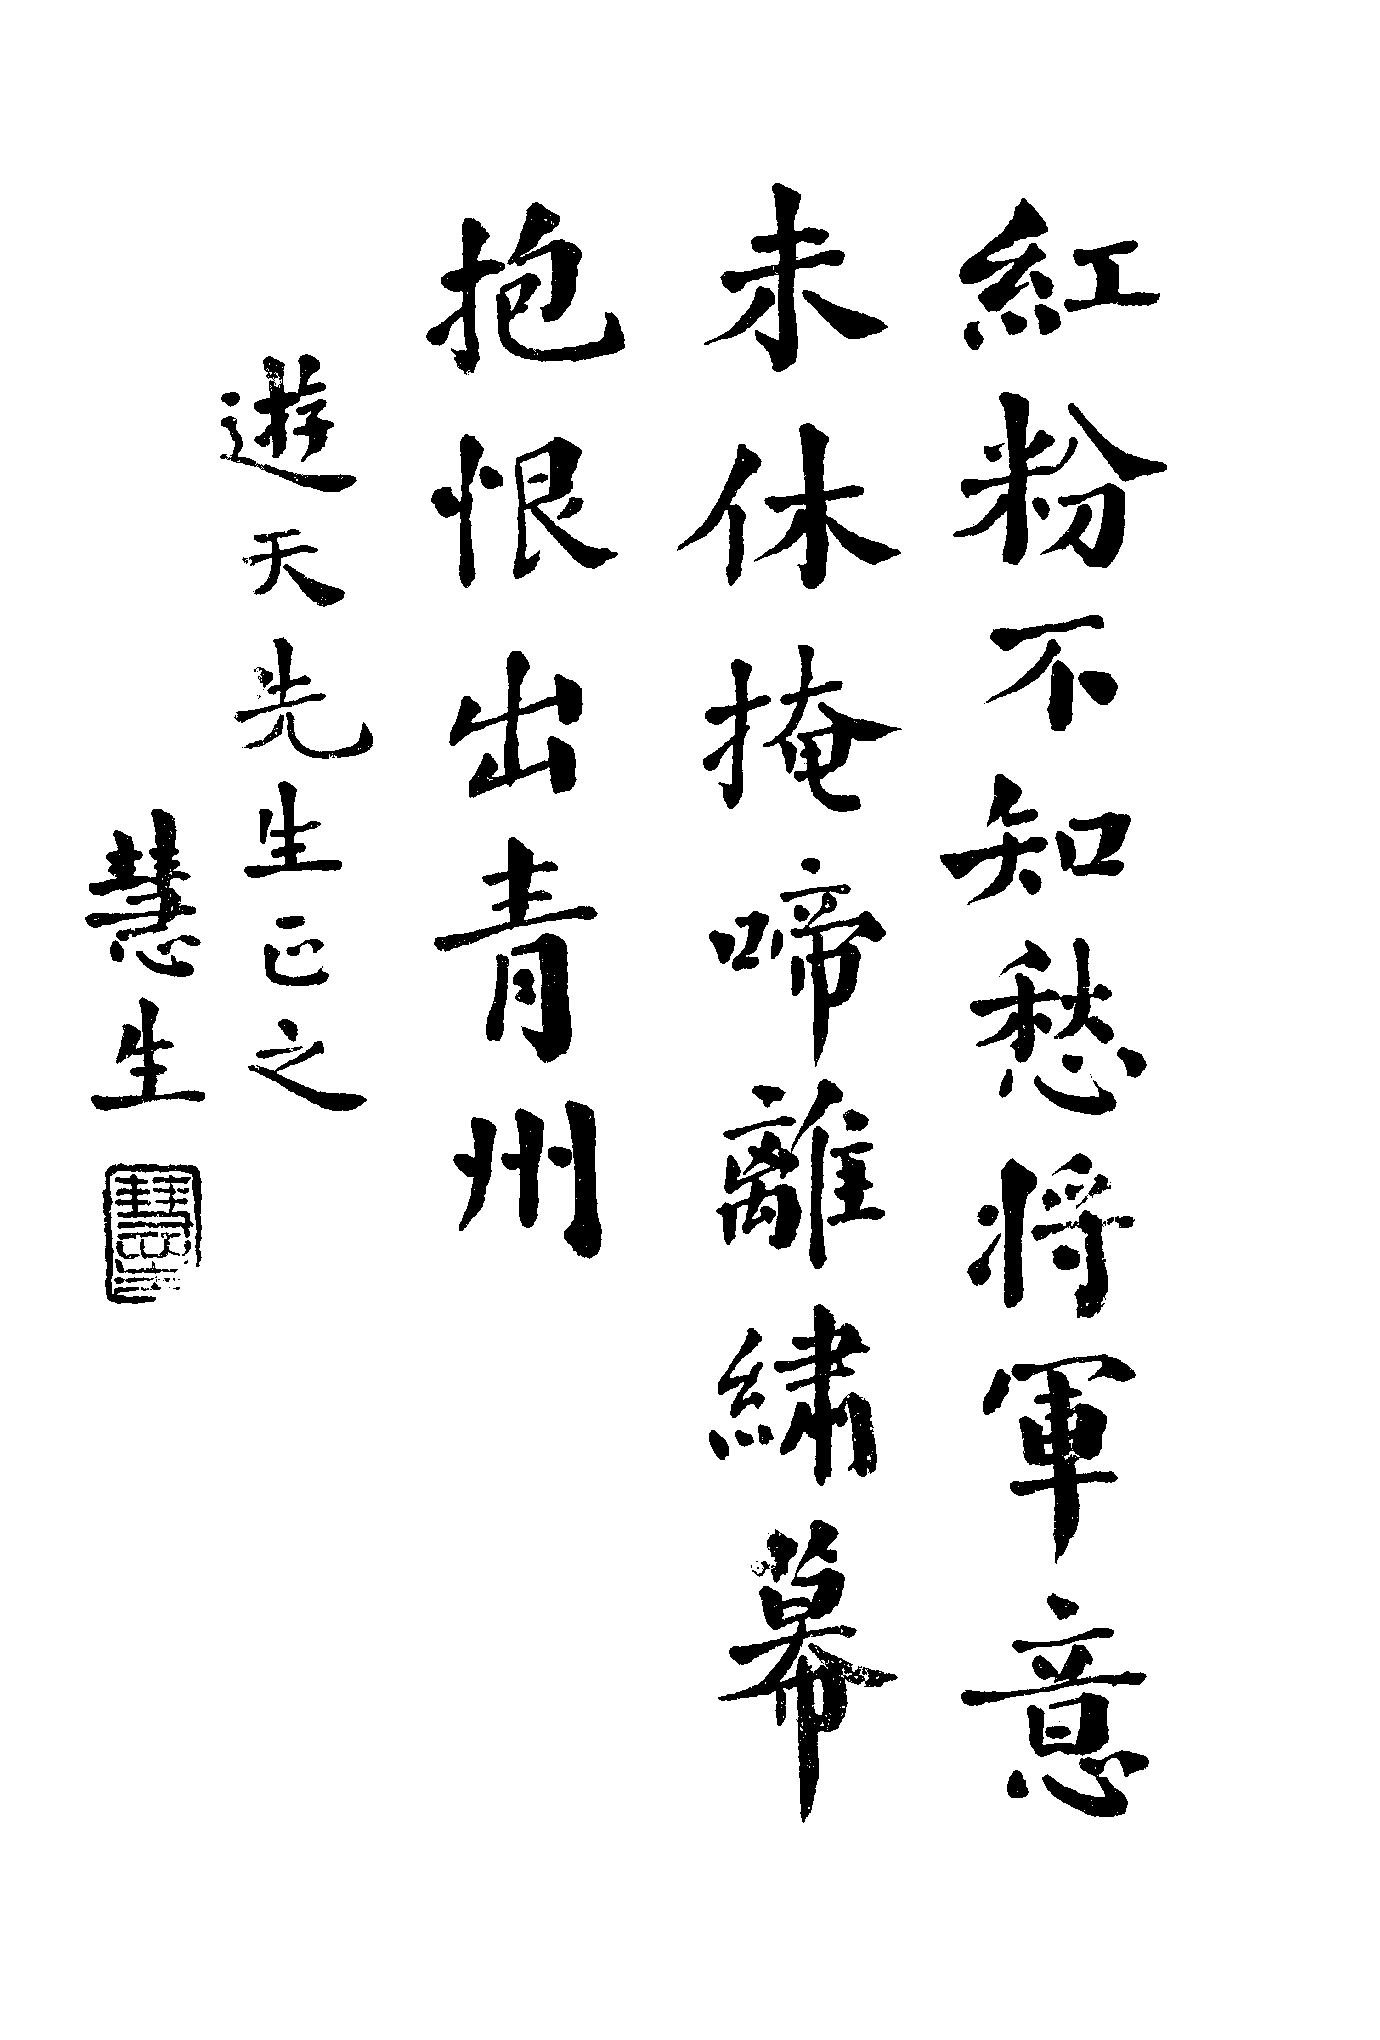 紅粉不知愁将軍意
未休掩啼離繡幕
抱恨出青州
遊天先生正之
慧生
慧生